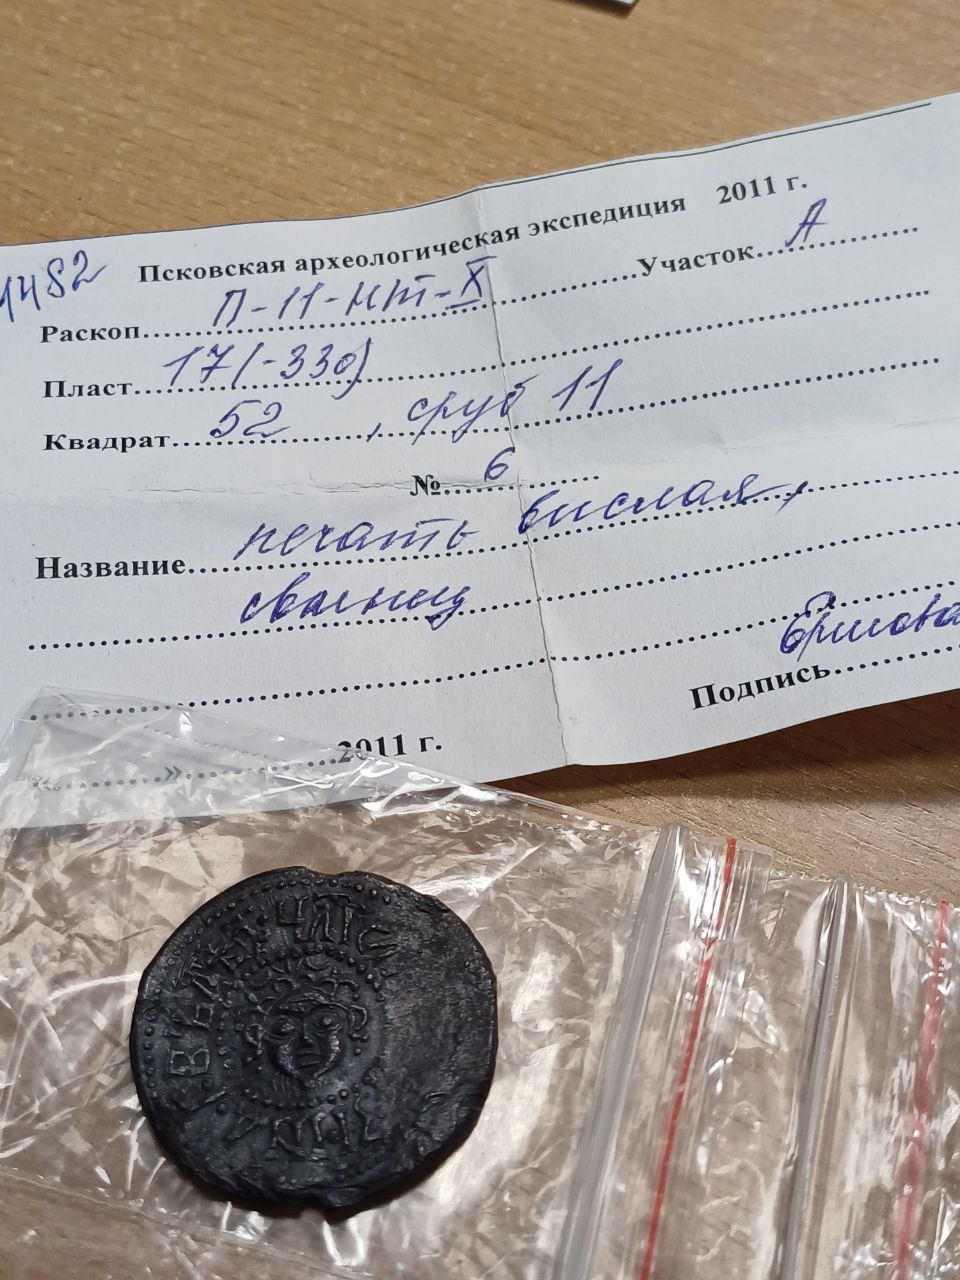 1482 Псковская археологическая экспедиция 2011 г.
Раскоп П-11-НТ-X Участок А
Пласт 17 (-330)
Квадрат 52, сруб 11
№ 6
Название печать вислая,
свинец
Подпись Ершова
«......» 2011 г.